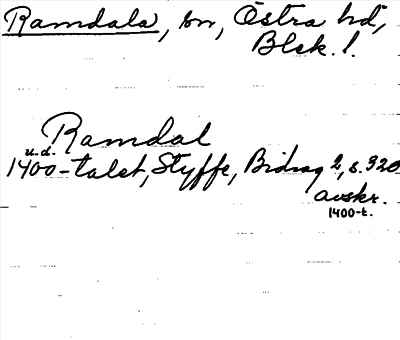 Ramdala, sn, Östra hd,
Blek. l.
Ramdal
u.d.
1400-talet, Styffe, Bidrag 2, s. 320
avskr.
1400-t.